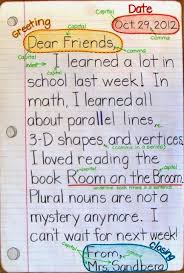 Capital
Date
Greeting
Oct. 29, 2012
Capital
Capital
comma
Dear Friends,
comma
Capital
indent
I learned a lot in
school last week! In
math, I learned all
about parallel lines,
3-D shapes, and vertices.
I loved reading the
book Room on the Broom.
Plural nouns are not a
mystery anymore. I
can't wait for next week!
closing
From,
Mrs. Sandberg